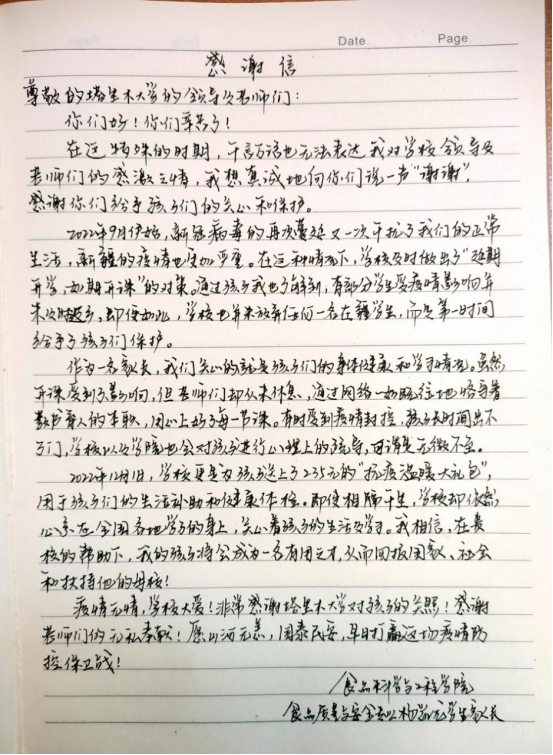 Date Page
感谢信
尊敬的塔里木大学的领导及老师们：
你们好！你们辛苦了！
在这特殊的时期，千言万语也无法表达我对学校领导及
老师们的感激之情，我想真诚地向你们说一声“谢谢”，
感谢你们给予孩子们的关心和保护。
2022年9月伊始，新冠病毒的再次蔓延又一次干扰了我们的正常
生活，新疆的疫情也更加严重。在这种情况下，学校及时做出了“延期
开学，如期开课”的对策。通过孩子我也了解到，有部分学生受疫情影响并
未及时返乡，即便如此，学校也并未放弃任何一名在疆学生，而是第一时间
给予了孩子们保护。
作为一名家长，我们关心的就是孩子们的身体健康和学习情况。虽然
开课受到了影响，但老师们却从未休息，通过网络一如既往地恪守着
教书育人的本职，用心上好了每一节课。有时受到疫情封控，孩子长时间出不
了门，学校以及学院也会对孩子进行心理上的疏导，可谓是无微不至。
2022年12月1日，学校更是为孩子送上了235元的“抗疫温暖大礼包”，
用于孩子们的生活补助和健康体检。即使相隔千里，学校却依然
心系在全国各地学子的身上，关心着孩子的生活及学习。我相信，在贵
校的帮助下，我的孩子将会成为一名有用之才，从而回报国家、社会
和扶持他的母校！
疫情无情，学校大爱！非常感谢塔里木大学对孩子的关照！感谢
老师们的无私奉献！愿山河无恙，国泰民安，早日打赢这场疫情防
控保卫战！
食品科学与工程学院
食品质量与安全专业 学生家长